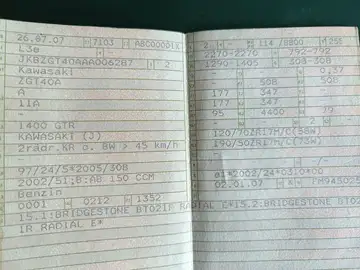 26.07.07 7103 ABC00001X
L3e -
JKBZGT40AAA006287 2
Kawasaki
ZGT40A
A
11A
-
1400 GTR
KAWASAKI (J)
2rädr.KR o. BW > 45 km/h
-
97/24/5*2005/30B
2002/51;B:AB 150 CCM
Benzin
0001 0212 1352
15.1:BRIDGESTONE BT021F RADIAL E*15.2:BRIDGESTONE BT02
IR RADIAL E*
2 - 114 /8800 255
2270-2270 792-792
1290-1405 308-308
- - - 0,37
- - 508 508
177 347 -
177 347 -
95 4400 79
120/70ZR17M/C(58W)
190/50ZR17M/C(73W)
-
- -/-
e1*2002/24*0310*00
02.01.07 K